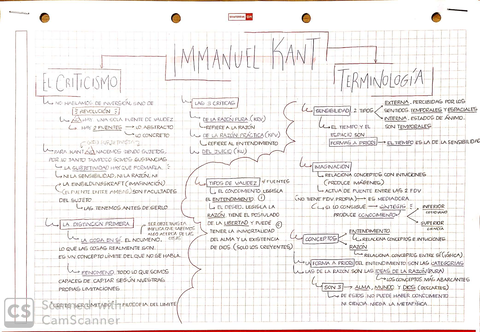 IMMANUEL KANT
EL CRITICISMO
NO HABLAMOS DE INVERSIÓN, SINO DE
REVOLUCIÓN
UNA SOLA FUENTE DE VALIDEZ
2 FUENTES
LO ABSTRACTO
LO CONCRETO
PARA KANT NACEMOS SIENDO SUJETOS,
POR LO TANTO TAMPOCO SOMOS SUSTANCIAS
LA SUBJETIVIDAD HAY QUE FORMARLA
NI LA SENSIBILIDAD, NI LA RAZÓN, NI
LA EINBILDUNGSKRAFT (IMAGINACIÓN)
(EL PUENTE ENTRE AMBAS) SON FACULTADES
DEL SUJETO
LAS TENEMOS ANTES DE SERLO
LA DISTINCIÓN PRIMERA
LA COSA EN SÍ. EL NOÚMENO,
LO QUE LAS COSAS REALMENTE SON.
ES UN CONCEPTO LÍMITE DEL QUE NO SE HABLA.
FENÓMENO. TODO LO QUE SOMOS
CAPACES DE CAPTAR SEGÚN NUESTRAS
PROPIAS LIMITACIONES
FILOSOFÍA DEL LÍMITE
LAS 3 CRÍTICAS
DE LA RAZÓN PURA (KRV)
REFIERE A LA RAZÓN
DE LA RAZÓN PRÁCTICA (KPV)
REFIERE AL ENTENDIMIENTO
DEL JUICIO (KU)
TIPOS DE VALIDEZ
EL CONOCIMIENTO LEGISLA
EL ENTENDIMIENTO
EL DEBER, LEGISLA LA
RAZÓN. TIENE EL POSTULADO
DE LA LIBERTAD Y PUEDE
TENER LA INMORTALIDAD
DEL ALMA Y LA EXISTENCIA
DE DIOS (SOLO LOS CREYENTES)
TERMINOLOGÍA
SENSIBILIDAD 2 TIPOS
EXTERNA. PERCIBIDAS POR LOS
SENTIDOS. TEMPORALES Y ESPACIALES
INTERNA. ESTADOS DE ÁNIMO.
SON TEMPORALES.
EL TIEMPO Y EL
ESPACIO SON
FORMAS A PRIORI
EL TIEMPO ES LA DE LA SENSIBILIDAD
IMAGINACIÓN
RELACIONA CONCEPTOS CON INTUICIONES
(PRODUCE IMÁGENES)
ACTÚA DE PUENTE ENTRE LAS 2 FDV
(NO TIENE FDV PROPIA) ES MEDIADORA
SI LO CONSIGUE SÍNTESIS
PRODUCE CONOCIMIENTO
INFERIOR
SUPERIOR
CONCEPTOS
ENTENDIMIENTO
RELACIONA CONCEPTOS E INTUICIONES
RAZÓN
RELACIONA CONCEPTOS ENTRE SÍ (LÓGICA)
FORMA A PRIORI DEL ENTENDIMIENTO SON LAS CATEGORÍAS
LAS DE LA RAZÓN SON LAS IDEAS DE LA RAZÓN (PURA)
LOS CONCEPTOS MÁS ABARCANTES
SON 3 ALMA, MUNDO Y DIOS
DE ESTOS NO PUEDE HABER CONOCIMIENTO
NI CIENCIA. NIEGA LA METAFÍSICA
CS
CamScanner